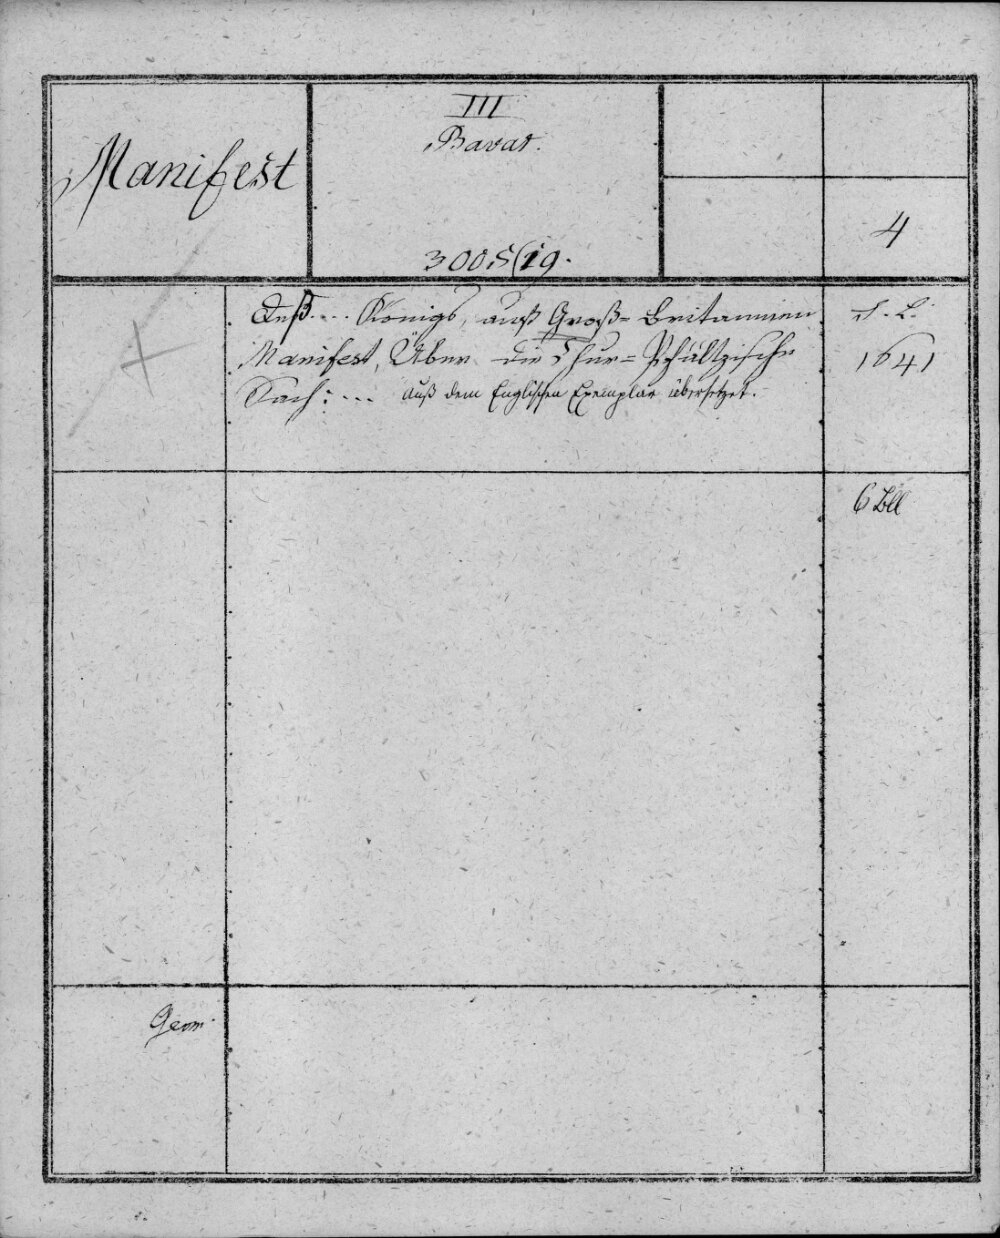 Manifest
III
Bavar.
3005(19.
4
Deß.... Königs, auß Groß= Britannien
Manifest, Über die Chur= Pfältzische
Sach: ... auß dem Englischen Exemplar übersetzet.
S. L.
1641
6 Bll
Germ.